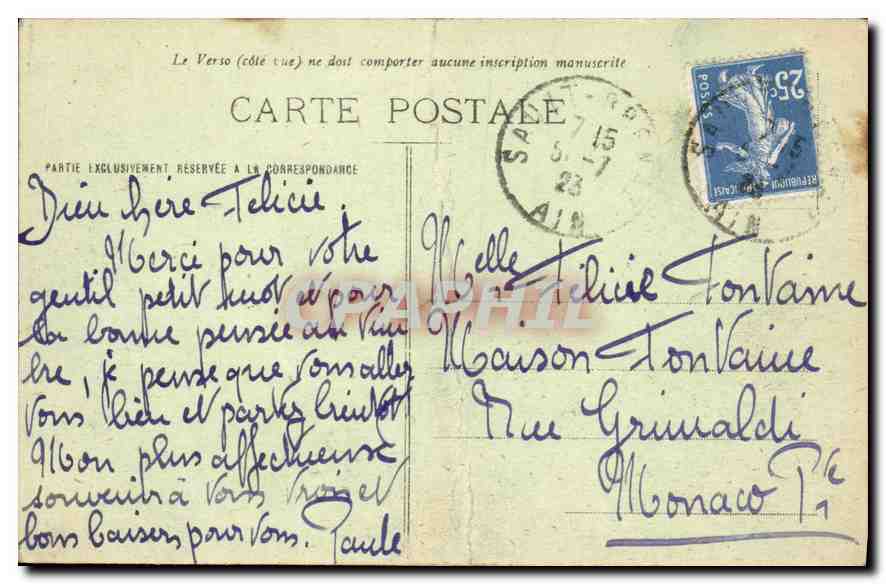 Le Verso (côté vue) ne doit comporter aucune inscription manuscrite
CARTE POSTALE
PARTIE EXCLUSIVEMENT RÉSERVÉE A LA CORRESPONDANCE
Bien chère Félicie.
Merci pour votre
gentil petit mot et pour
la bonne pensée du
je pense que vous allez
tous bien et partez bientôt
Mon plus affectueux
souvenir à vous trois et
bons baisers pour vous. Paule
Melle Félicie Fontaine
Maison Fontaine
Rue Grimaldi
Monaco Pté
25c
POSTES
REPUBLIQUE FRANÇAISE
7 15
23
AIN
AIN
CPAPHIL